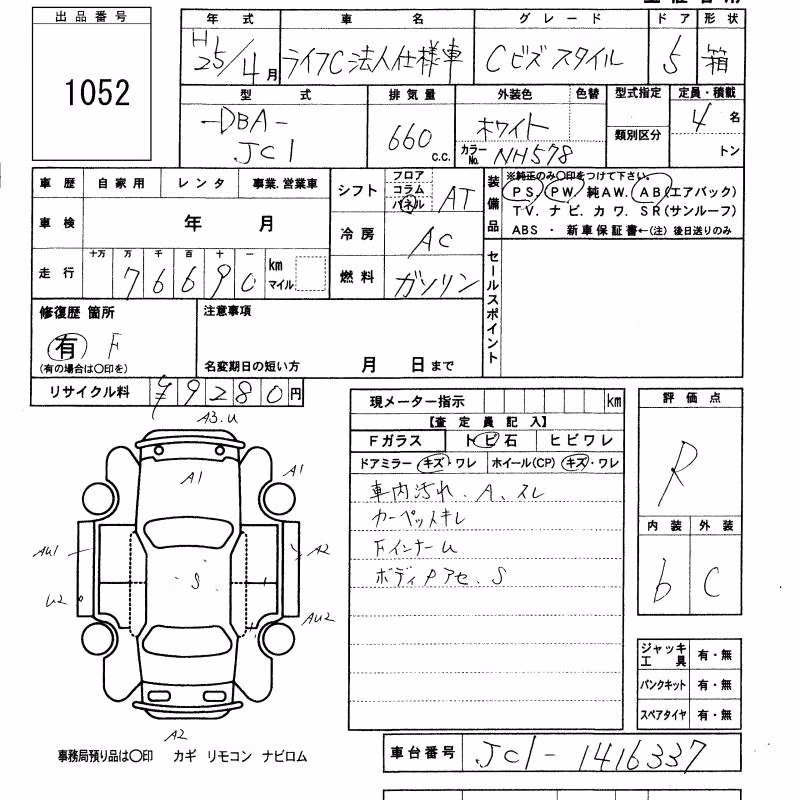 出品番号
1052
年式 車名 グレード ドア 形状
H25/4月 ライフC法人仕様車 Cビズスタイル 5 箱
型式 排気量 外装色 色替 型式指定 定員・積載
-DBA- JC1 660 c.c. ホワイト 類別区分 4名
カラーNo. NH578 トン
車歴 自家用 レンタ 事業.営業車
車検 年 月
走行 十万 万 千 百 十 一
76690 km マイル
シフト フロア コラム パネル AT
冷房 AC
燃料 ガソリン
装備品 ※純正のみ○印をつけて下さい。
PS. PW. 純AW. AB(エアバック)
TV. ナビ. カワ. SR(サンルーフ)
ABS ・ 新車保証書←(注) 後日送りのみ
セールスポイント
修復歴 箇所
有 F
(有の場合は○印を)
注意事項
名変期日の短い方 月 日まで
リサイクル料 ¥9280円
現メーター指示 km
【査定員記入】
Fガラス トビ石 ヒビワレ
ドアミラー キズ・ワレ ホイール(CP) キズ・ワレ
車内汚れ、A、スレ
カーペットキレ
FインナーU
ボディPアセ、S
評価点
R
内装 外装
b C
A3.U
A1 A1
AU1 A2
S
U2 AU2
A2
ジャッキ工具 有・無
パンクキット 有・無
スペアタイヤ 有・無
事務局預り品は○印 カギ リモコン ナビロム
車台番号 JC1-1416337